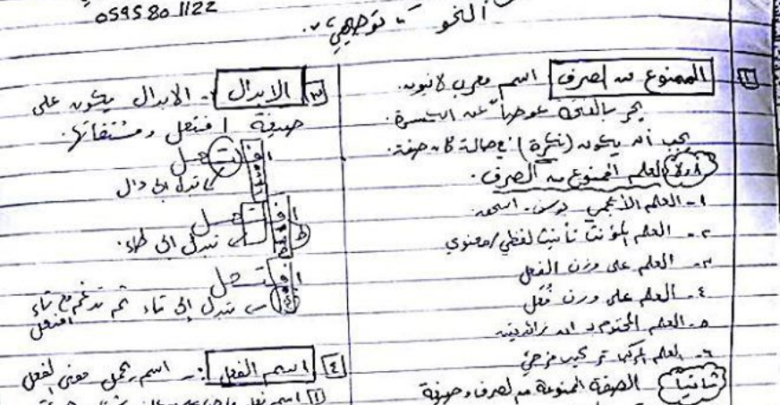 0595801122
النحو - توجيهي
١ الممنوع من الصرف اسم معرب لا ينون.
يجر بالفتحة عوضاً عن الكسرة
يجب أن يكون (نكرة) في حالة كان صفة.
أولاً العلم الممنوع من الصرف.
١- العلم الأعجمي
٢- العلم المؤنث تأنيث لفظي/معنوي
٣- العلم على وزن الفعل
٤- العلم على وزن فُعَل
٥- العلم المختوم بـ ان زائدتين
٦- العلم المركب تركيب مزجي
ثانياً الصفة الممنوعة من الصرف وصيغة
٣ الابدال :- الابدال يكون على
صيغة افتعل ومشتقاتها.
تبدل الى دال
تبدل الى طاء.
تبدل إلى تاء ثم تدغم مع تاء
افتعل
٤ اسم الفعل :- اسم يحمل معنى الفعل